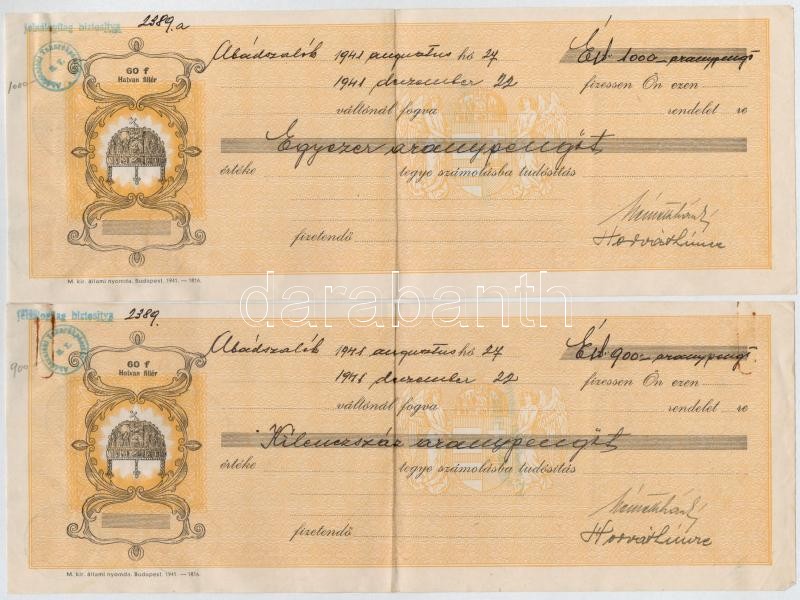 jelzálogilag biztosítva
2389.a
1000
60 f
Hatvan fillér
Abádszalók 1941 augusztus hó 27
1000 aranypengő
1941 december 22
fizessen Ön ezen
váltónál fogva
rendelet re
Egyezer aranypengőt
értéke
tegye számolásba tudósítás
fizetendő
Horváth Imre
M. kir. állami nyomda. Budapest. 1941. — 1816.
darabanth
jelzálogilag biztosítva
2389.
900
60 f
Hatvan fillér
Abádszalók 1941 augusztus hó 27
900 aranypengő
1941 december 22
fizessen Ön ezen
váltónál fogva
rendelet re
Kilencszáz aranypengőt
értéke
tegye számolásba tudósítás
fizetendő
Horváth Imre
M. kir. állami nyomda. Budapest. 1941. — 1816.